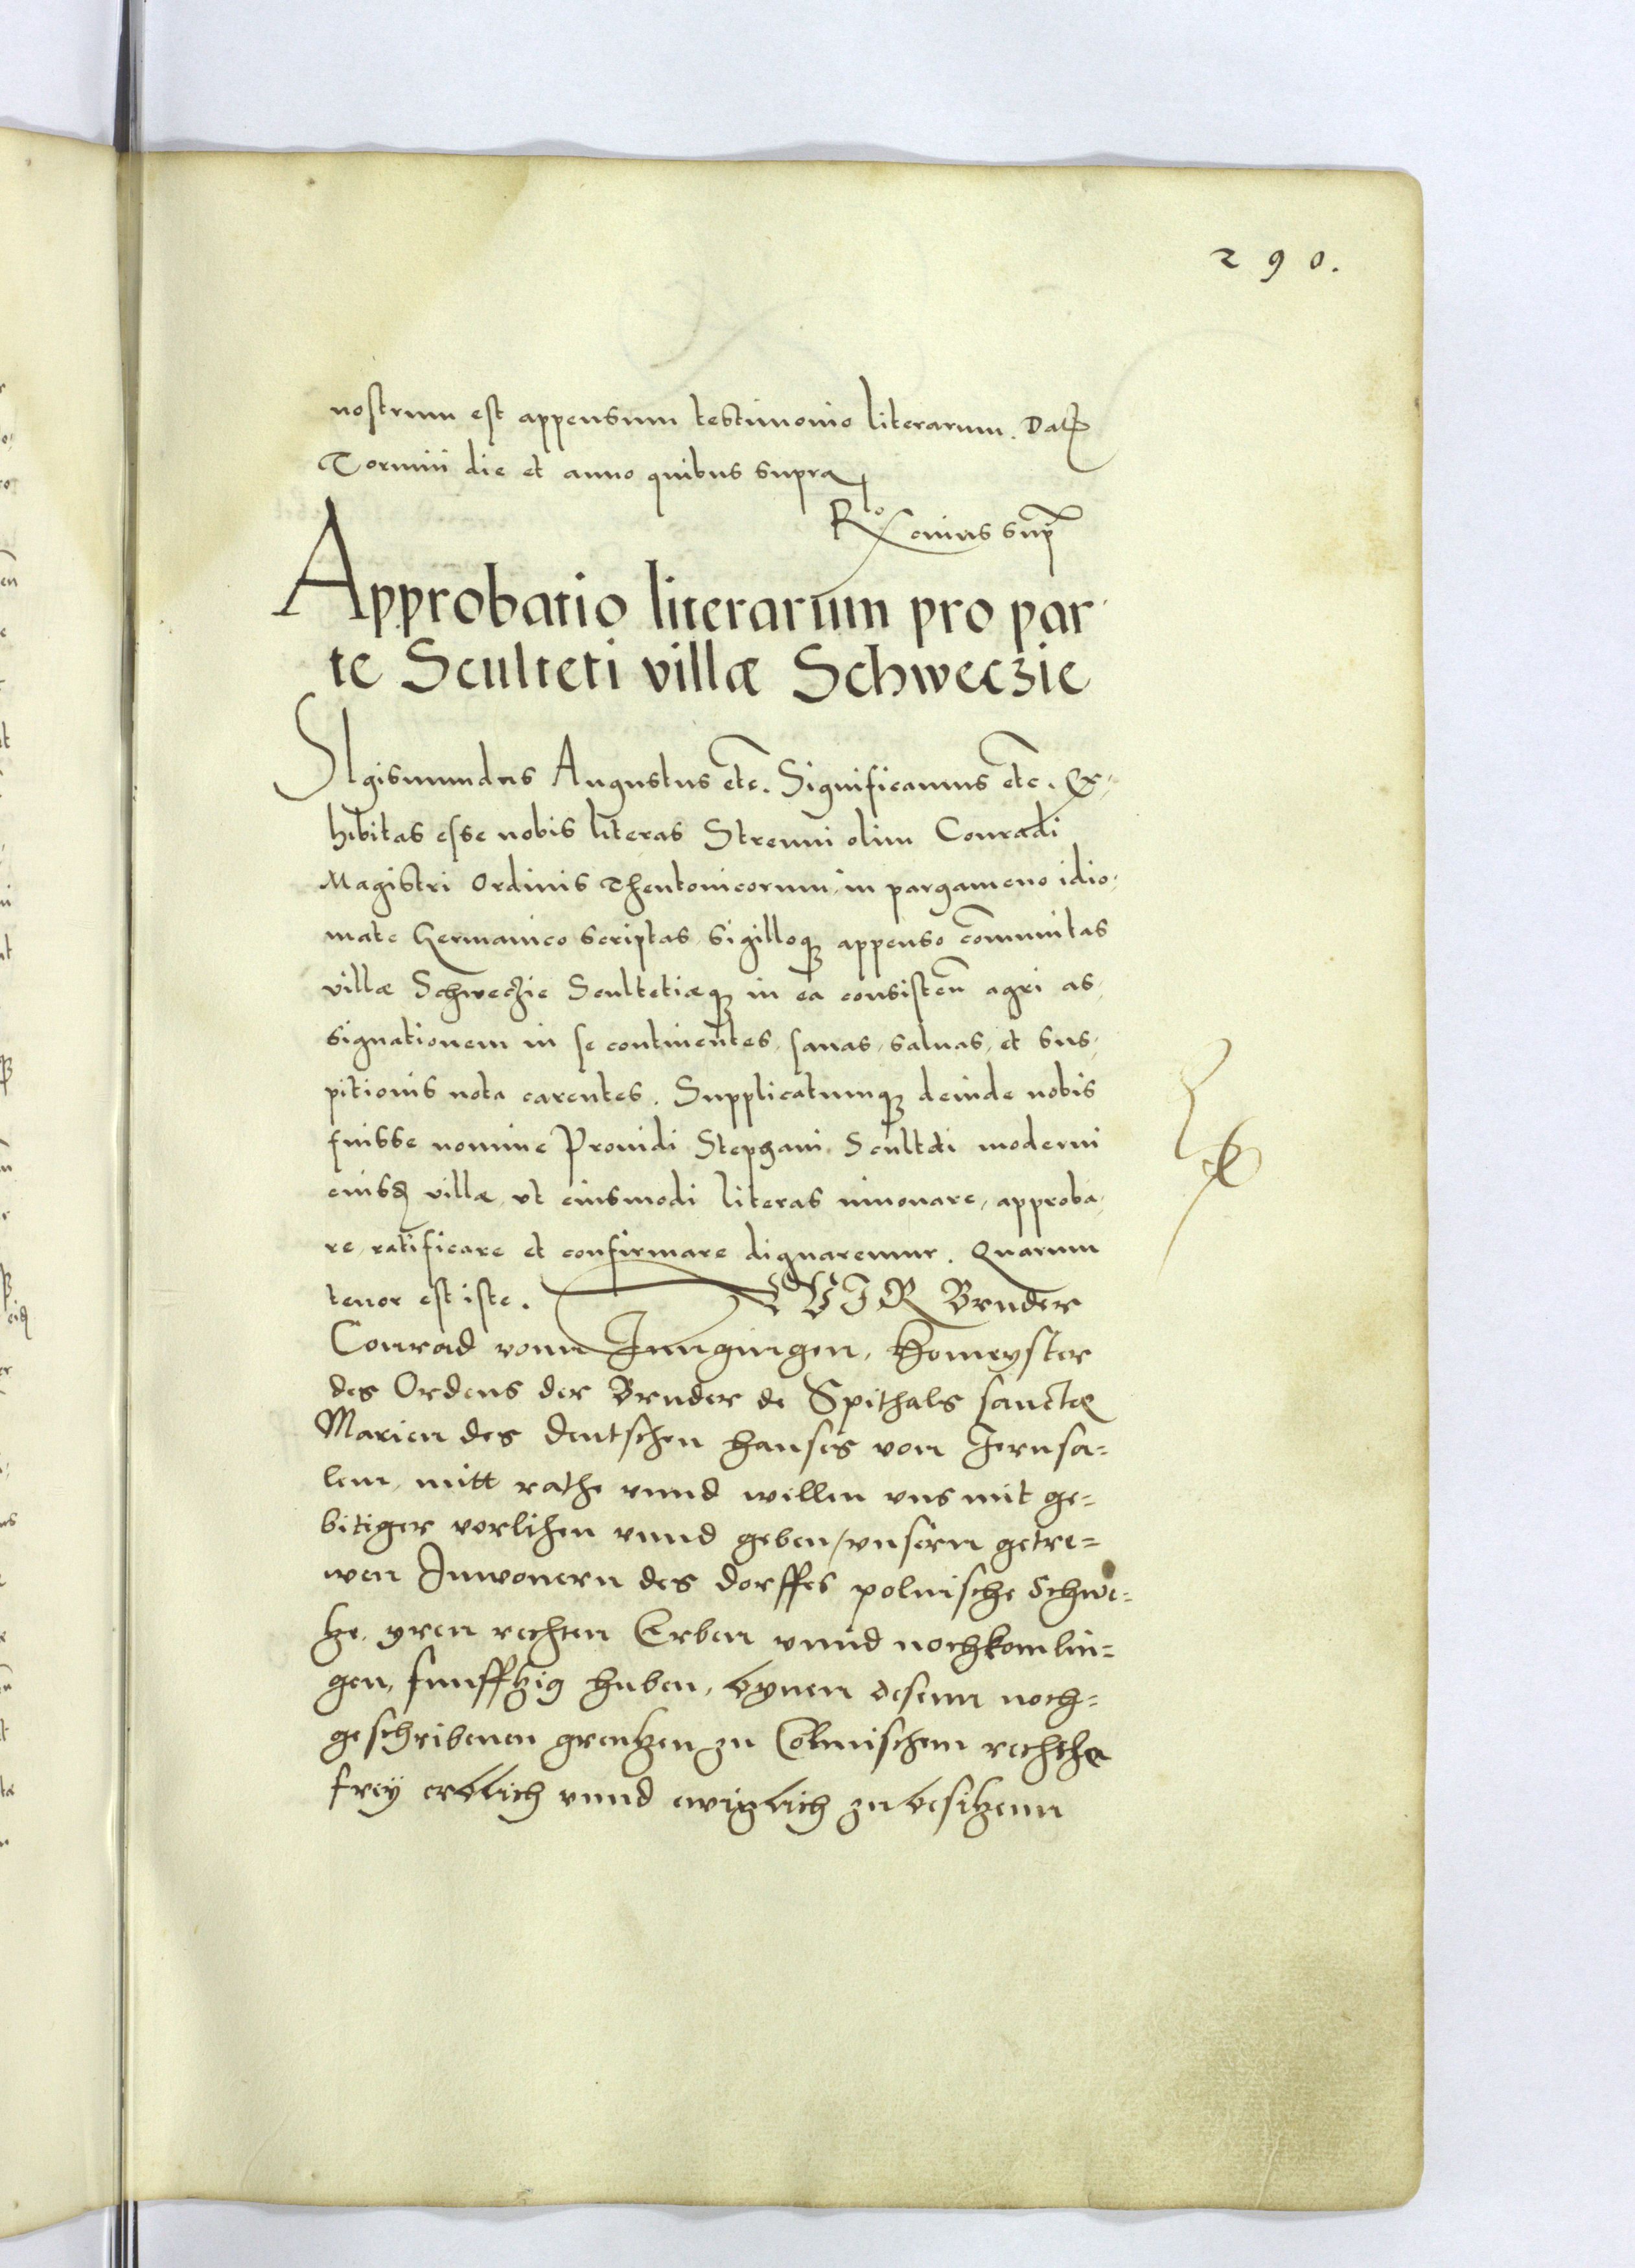 290.
nostrum est appensum testimonio literarum. Dat
Torunii die et anno quibus supra
Ro eius sup
Approbatio literarum pro par
te Sculteti villæ Schweczie
SIgismundus Augustus etc. Significamus etc. Ex-
hibitas esse nobis literas Strenui olim Conradi
Magistri Ordinis Theutonicorum in pargameno idio-
mate Germanico scriptas sigilloq appenso communitas
villæ Schweczie Scultetiæq in ea consisten agri as-
signationem in se continentes, sanas, saluas, et sus-
pitionis nota carentes. Supplicatumq deinde nobis
fuisse nomine Prouidi Stephani Sculteti moderni
eiusd villæ vt eiusmodi literas innouare, approba-
re, ratificare et confirmare dignaremur. Quarum
tenor est iste. WIR Bruder
Conrad vonn Jungingen, Homeyster
des Ordens der Bruder de Spithals sanctæ
Marien des deutschen hauses von Jerusa=
lem, mitt rathe vnnd willen vns mit ge=
bitiger vorlihen vnnd geben / vnsern getre=
wen Inwonern des dorffes polnische Schwe=
tze, yren rechten Erben vnnd nochkomlin=
gen, funfftzig huben, bynen desenn noch=
geschribenen grentzen zu Colmischem rechthe
frey erblich vnnd ewiglich zu besitzenn